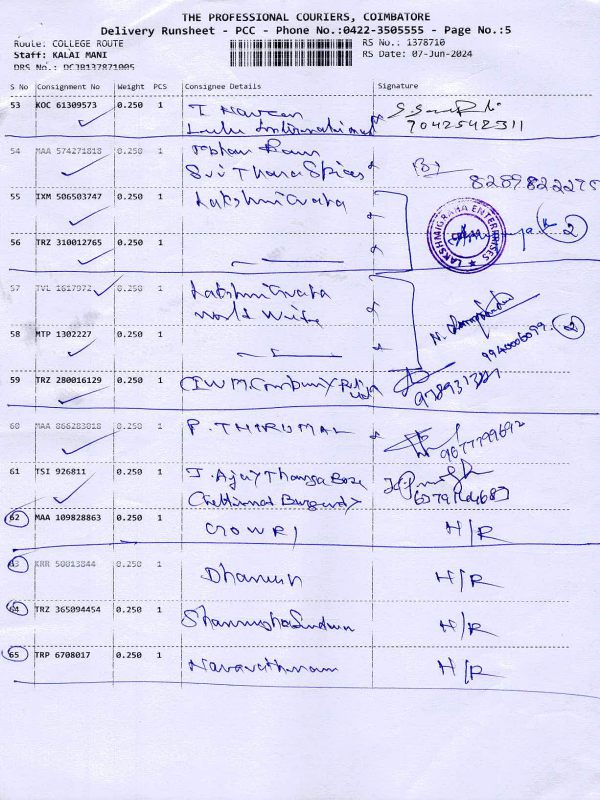 THE PROFESSIONAL COURIERS, COIMBATORE
Delivery Runsheet - PCC - Phone No.:0422-3505555 - Page No.:5
Route: COLLEGE ROUTE RS No.: 1378710
Staff: KALAI MANI RS Date: 07-Jun-2024
DRS No.: DC3B137871005
S No Consignment No Weight PCS Consignee Details Signature
53 KOC 61309573 0.250 1 T Naveen
Lulu International 7042542311
54 MAA 574271818 0.250 1
Sri Thara Spices 8289822275
55 IXM 506503747 0.250 1 Lakshmi
LAKSHMIGRAHA ENTERPRISES 2
56 TRZ 310012765 0.250 1
57 TVL 1617972 0.250 1 Lakshmi
World
58 MTP 1302227 0.250 1 9940006099 2
59 TRZ 280016129 0.250 1 Company
60 MAA 866283818 0.250 1 P. THIRUMAL 9677799692
61 TSI 926811 0.250 1 J. Ajay Thanga Bose
Chettinad
62 MAA 109828863 0.250 1 GOWRI H/R
63 KRR 50013844 0.250 1 Dhanush H/R
64 TRZ 365094454 0.250 1 H/R
65 TRP 6708017 0.250 1 Navarathnam H/R